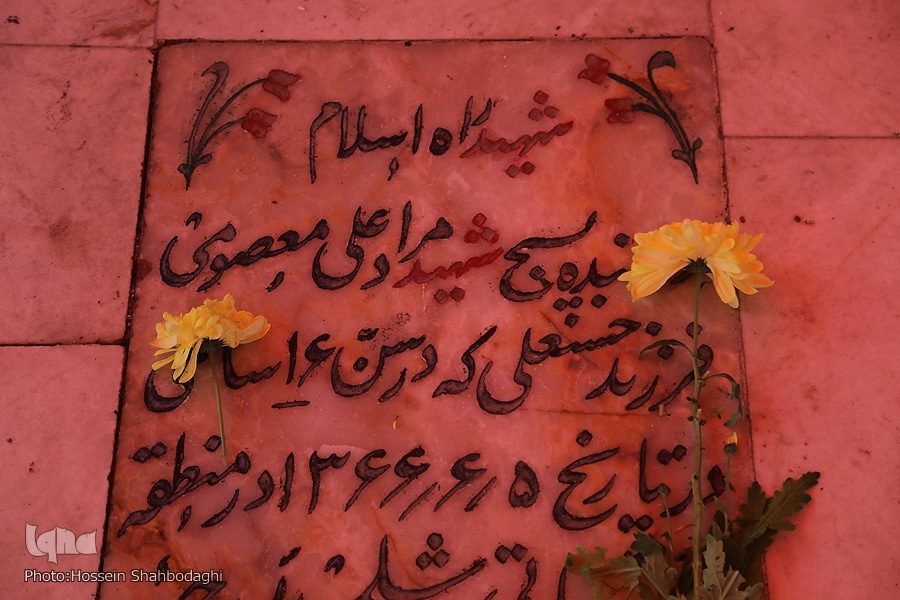 شهید راه اسلام
بسیج شهید مراد علی معصومی
فرزند حسنعلی که در سنّ ۱۶ سالگی
در تاریخ ۵/۶/۱۳۶۶ در منطقه
iqna
Photo:Hossein Shahbodaghi